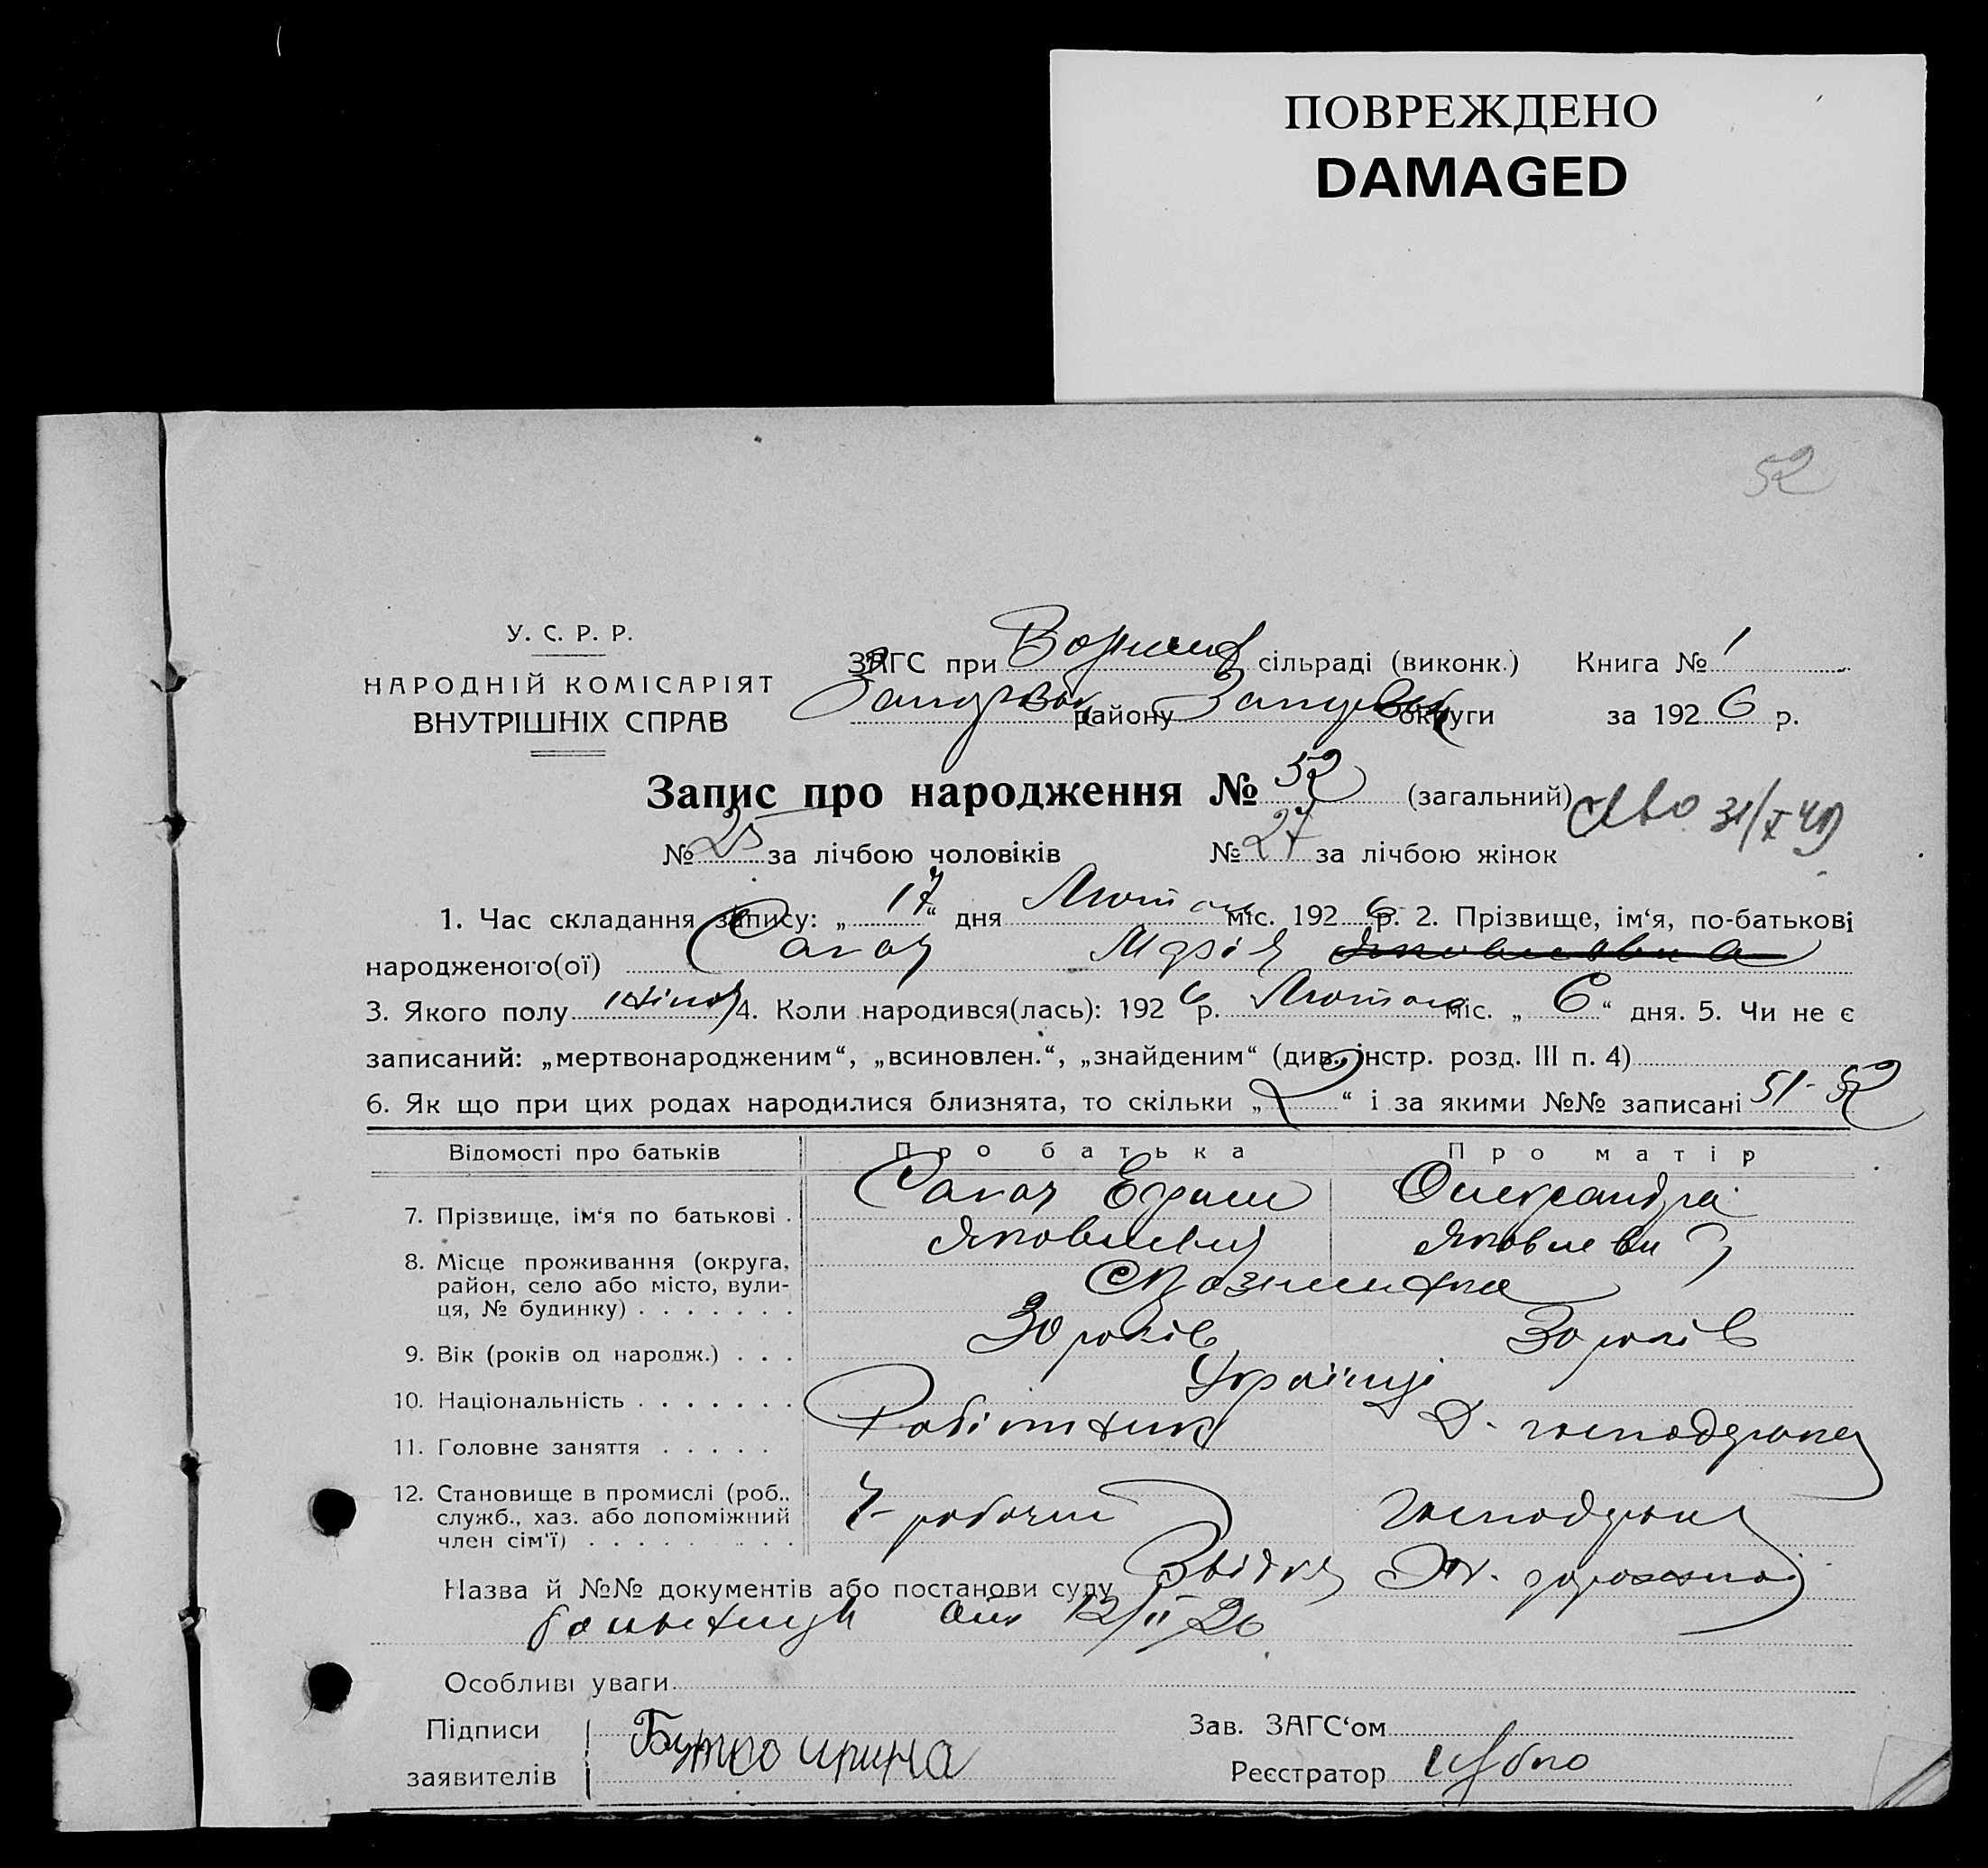 ПОВРЕЖДЕНО
DAMAGED
52
У. С. Р. Р.
НАРОДНІЙ КОМІСАРІЯТ
ВНУТРІШНІХ СПРАВ
ЗАГС при сільраді (виконк.) Книга № 1
району округи за 1926 р.
Запис про народження № 52 (загальний)
31/X 49
№ 25 за лічбою чоловіків № 27 за лічбою жінок
1. Час складання запису: „17“ дня Лютого міс. 1926 р. 2. Прізвище, ім‘я, по-батькові
народженого(ої) Сакач Марія
3. Якого полу жіноч 4. Коли народився(лась): 1926 р. Лютого міс. „6“ дня. 5. Чи не є
записаний: „мертвонародженим“, „всиновлен.“, „знайденим“ (див. інстр. розд. III п. 4)
6. Як що при цих родах народилися близнята, то скільки „2“ і за якими №№ записані 51-52
Відомості про батьків Про батька Про матір
7. Прізвище, ім‘я по батькові . Сакач Олександра
Яковлевич Яковлевна
8. Місце проживання (округа, район, село або місто, вулиця, № будинку) . . . . . . .
9. Вік (років од народж.) . . . 30 років 30 років
10. Національність . . . . . . . Українці
11. Головне заняття . . . . . Робітник Д. господарка
12. Становище в промислі (роб., служб., хаз. або допоміжний член сім‘ї) . . . . . . . . . робочий господарка
Назва й №№ документів або постанови суду Звідка
больниці від 12/II 26
Особливі уваги
Підписи заявителів Бутко ирина
Зав. ЗАГС‘ом
Реєстратор